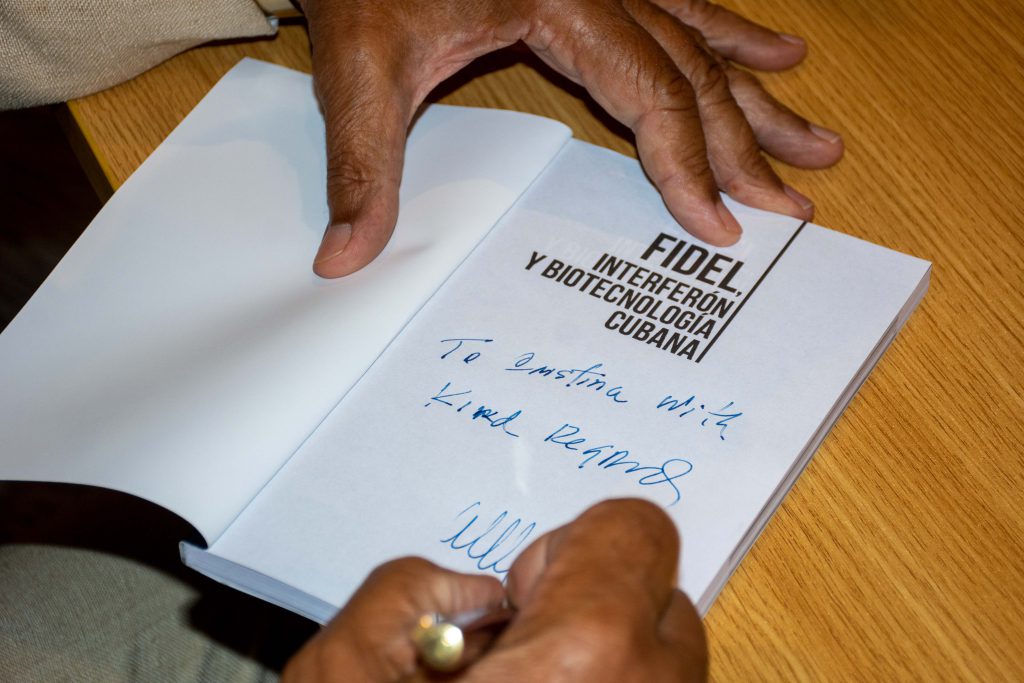 FIDEL,
INTERFERÓN,
Y BIOTECNOLOGÍA
CUBANA
To Cristina with
Kind Regards